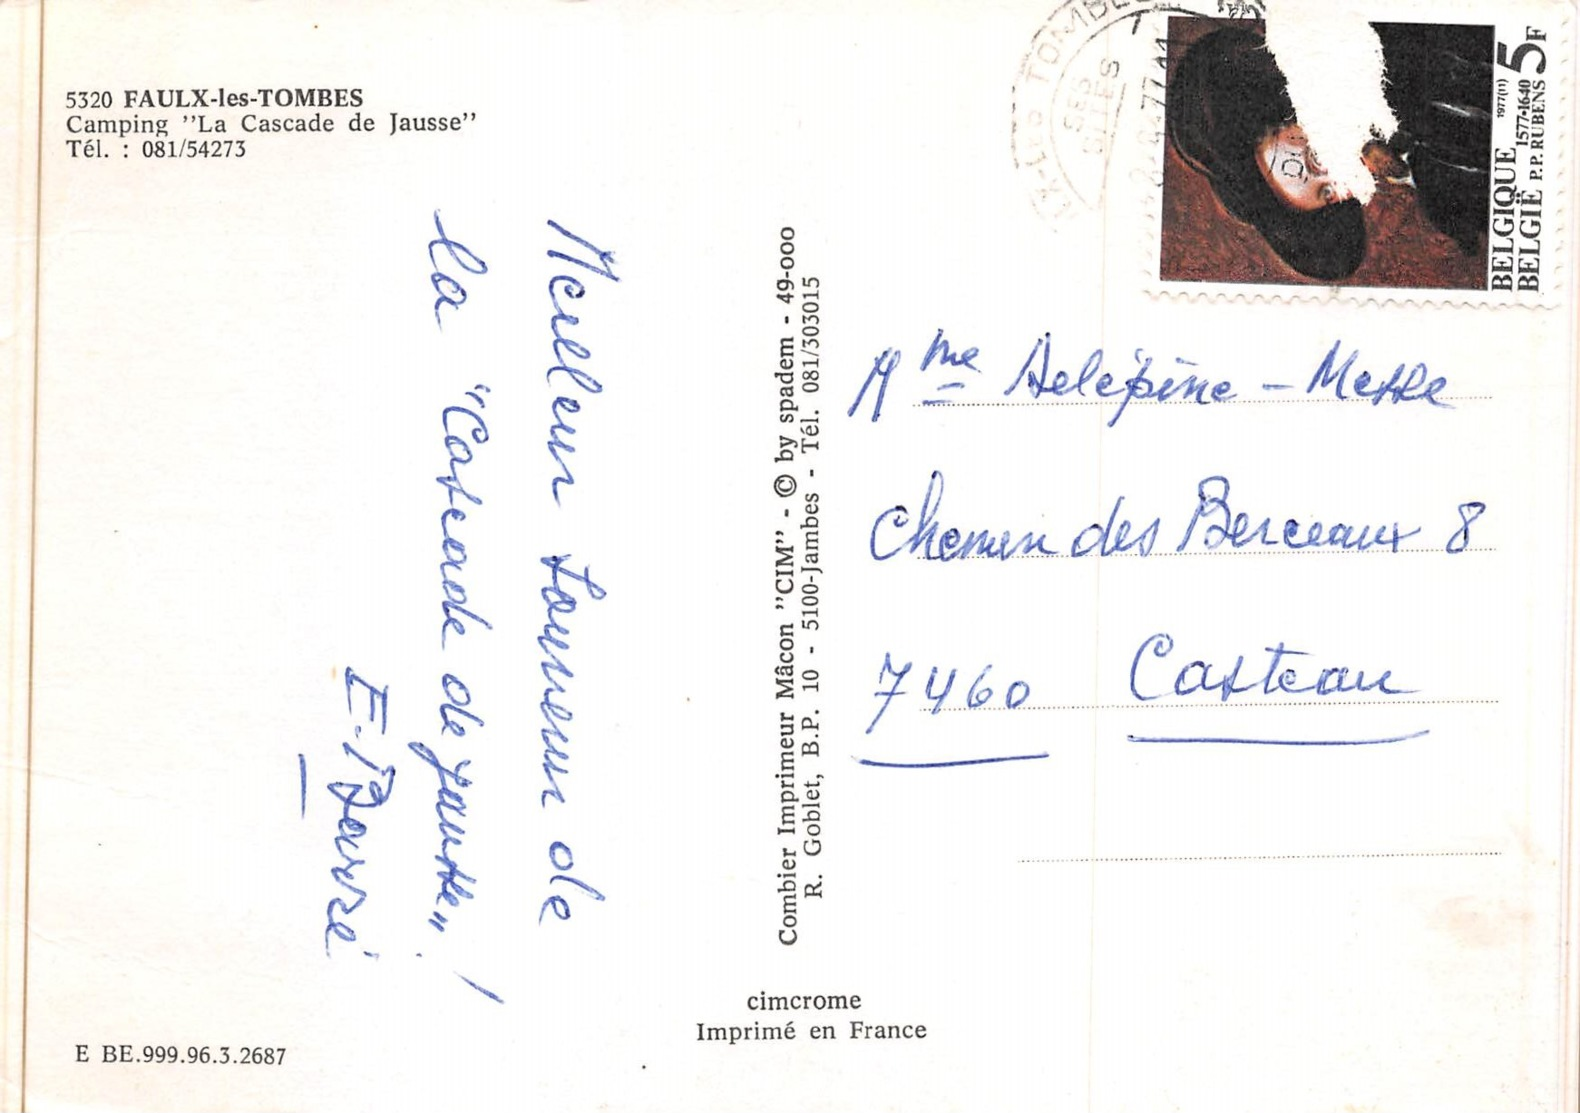 5320 FAULX-les-TOMBES
Camping "La Cascade de Jausse"
Tél. : 081/54273
Meilleur souvenir de
la "Cascade de Jausse" !
E. 
E BE.999.96.3.2687
Combier Imprimeur Mâcon "CIM" - © by spadem - 49-000
R. Goblet, B.P. 10 - 5100-Jambes - Tél. 081/303015
cimcrome
Imprimé en France
BELGIQUE
BELGIË
1977(11)
1577-1640
P.P. RUBENS
5F
TOMBES
SES
Mme Delépine - Mesple
Chemin des Berceaux 8
7460 Casteau